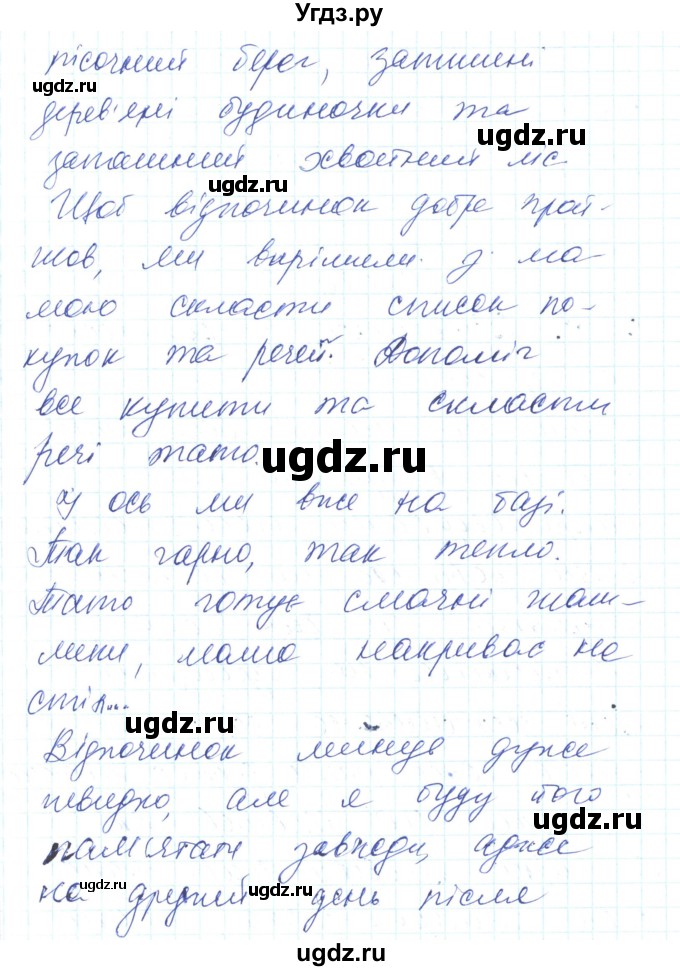 Угдз.ру
пісочний берег, затишні
ugdz.ru
дерев'яні будиночки та
ugdz.ru
запашний хвойний ліс.
ugdz.ru
Щоб відпочинок добре прой-
шов, ми вирішили з ма-
мою скласти список по-
купок та речей. Допоміг
все купити та скласти
речі тато.
ugdz.ru
І ось ми вже на базі.
Так гарно, так тепло.
Тато готує смачні шаш-
лики, мама накриває на
стіл...
ugdz.ru
Відпочинок минув дуже
швидко, але я буду його
ugdz.ru
пам'ятати завжди, адже
на другий день після
ugdz.ru
ugdz.ru
ugdz.ru